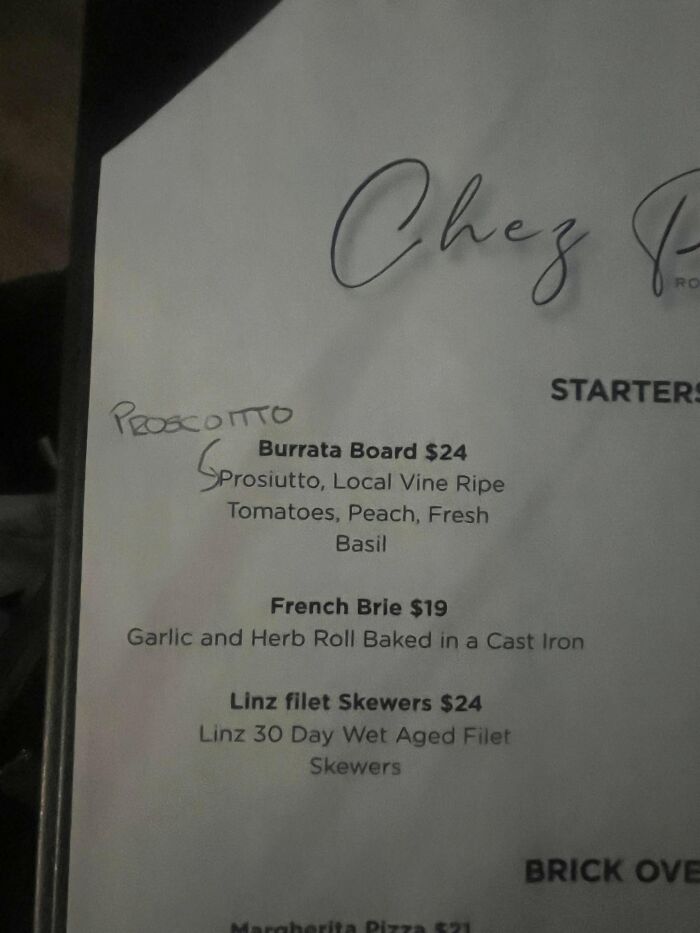 Chez P
RO
STARTERS
PROSCOITTO
Burrata Board $24
Prosiutto, Local Vine Ripe
Tomatoes, Peach, Fresh
Basil
French Brie $19
Garlic and Herb Roll Baked in a Cast Iron
Linz filet Skewers $24
Linz 30 Day Wet Aged Filet
Skewers
BRICK OVE
Margherita Pizza $21